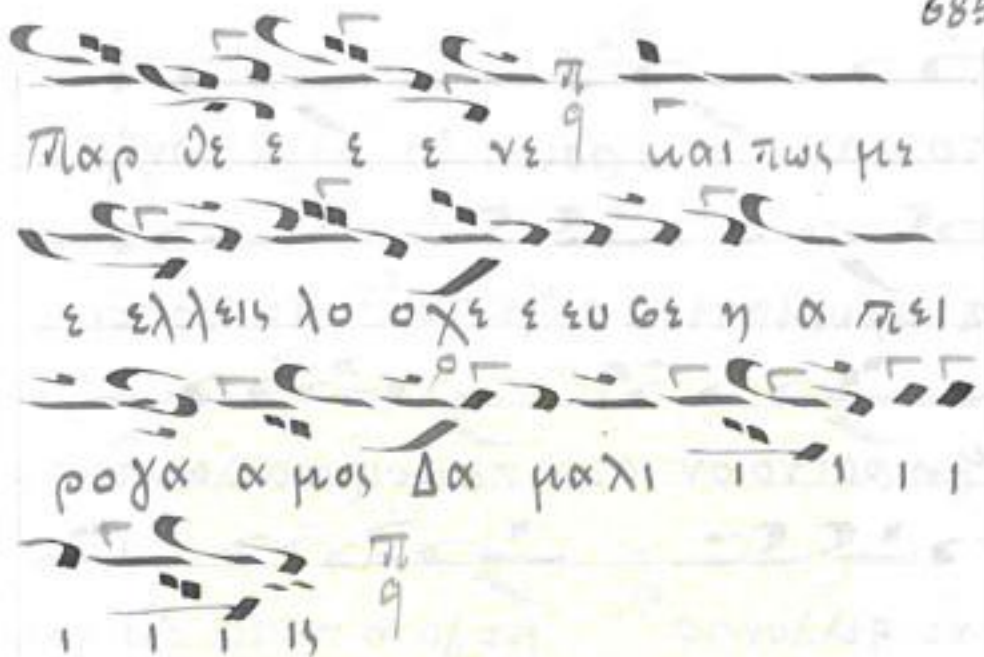 685
Παρ θε ε ε ε νε και πως με
ε ελλεις λο οχε ε ευ σε η α πει
ρογα α μος Δα μαλι ι ι ι ι
ι ι ι ις